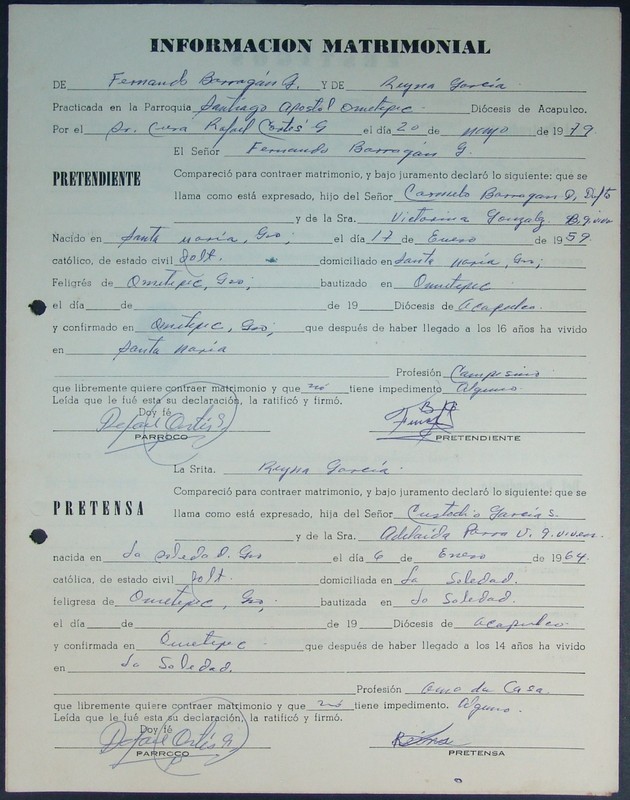 INFORMACION MATRIMONIAL
DE Fernando Barragán G. Y DE Reyna García.
Practicada en la Parroquia Santiago Apostol Ometepec. Diócesis de Acapulco.
Por el Sr. Cura Rafael Cortés G el día 20 de mayo de 1979.
El Señor Fernando Barragán G.
PRETENDIENTE
Compareció para contraer matrimonio, y bajo juramento declaró lo siguiente: que se
llama como está expresado, hijo del Señor Barragan D. Dfto
y de la Sra. Victorina Gonzalz. q. viven
Nacido en Santa María, Gro; el día 17 de Enero de 1959.
católico, de estado civil Solt. domiciliado en Santa María, Gro;
Feligrés de Ometepec, Gro; bautizado en Ometepec
el día de de 19 Diócesis de Acapulco.
y confirmado en Ometepec, Gro; que después de haber llegado a los 16 años ha vivido
en Santa María
Profesión Campesino
que libremente quiere contraer matrimonio y que no tiene impedimento Alguno.
Leída que le fué esta su declaración, la ratificó y firmó.
Doy fé
Rafael Cortés G.
PARROCO
PRETENDIENTE
La Srita. Reyna García.
PRETENSA
Compareció para contraer matrimonio, y bajo juramento declaró lo siguiente: que se
llama como está expresado, hija del Señor Custodio García S.
y de la Sra. Adelaida Parra V. q. viven.
nacida en La Soledad. Gro el día 6 de Enero de 1964.
católica, de estado civil Solt. domiciliada en La Soledad.
feligresa de Ometepec, Gro; bautizada en La Soledad.
el día de de 19 Diócesis de Acapulco
y confirmada en Ometepec que después de haber llegado a los 14 años ha vivido
en La Soledad.
Profesión ama de Casa.
que libremente quiere contraer matrimonio y que no tiene impedimento. Alguno.
Leída que le fué esta su declaración, la ratificó y firmó.
Doy fé
Rafael Cortés G.
PARROCO
PRETENSA